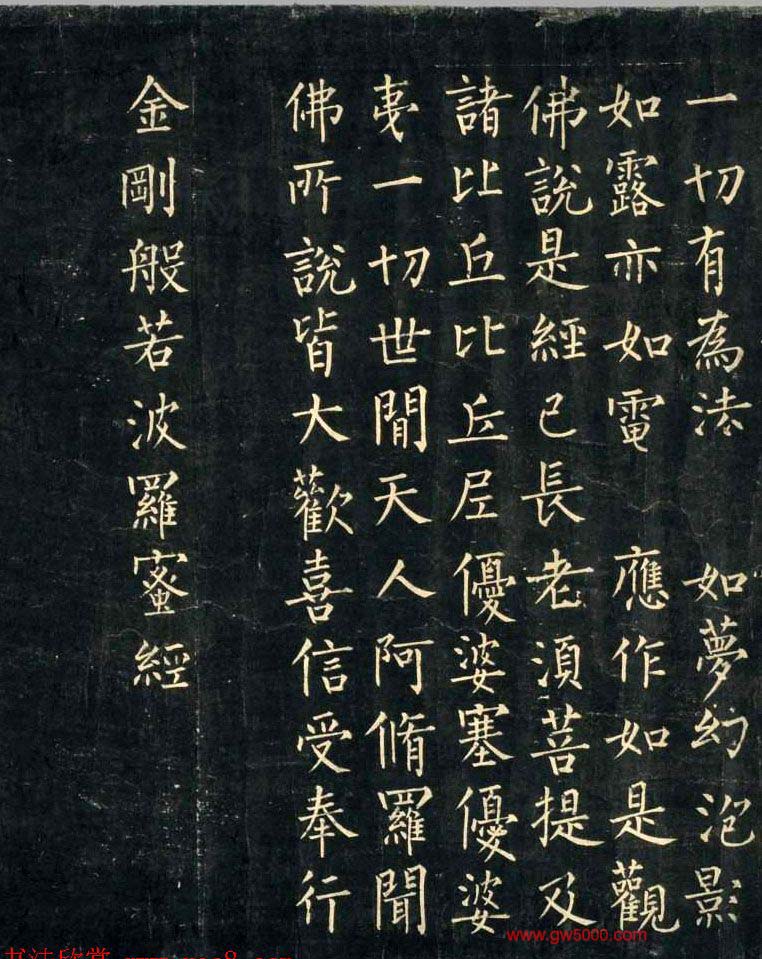 一切有為法　如夢幻泡影
如露亦如電　應作如是觀
佛說是經已長老須菩提及
諸比丘比丘尼優婆塞優婆
夷一切世間天人阿脩羅聞
佛所說皆大歡喜信受奉行
金剛般若波羅蜜經
www.gw5000.com